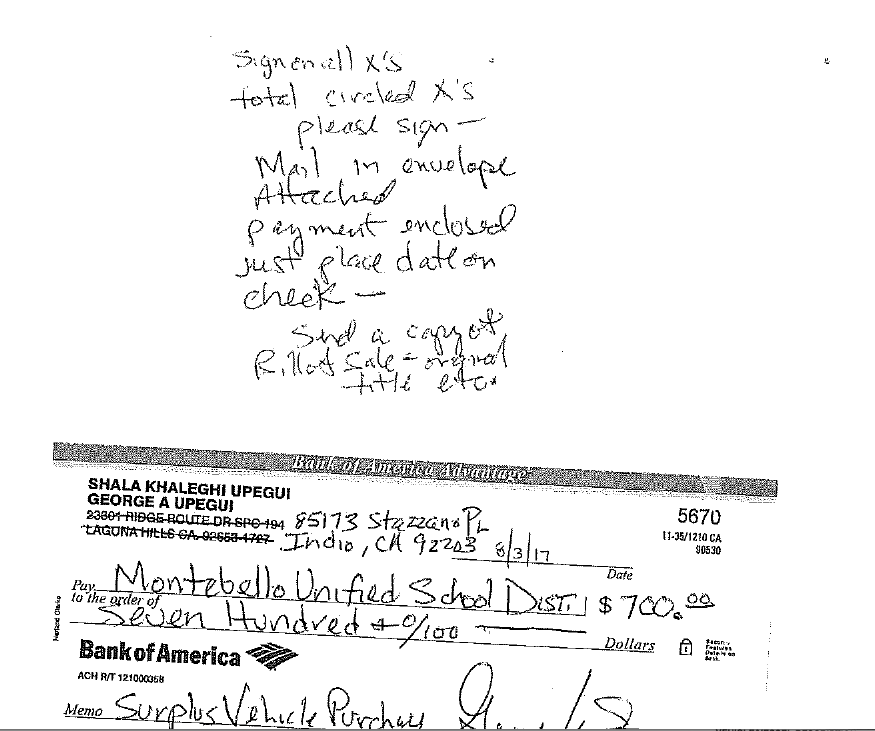 Sign on all X's
total circled X's
please sign —
Mail in envelope
Attached
payment enclosed
just place date on
check —
Send a copy of
Bill of Sale - original
title etc.
Bank of America Advantage
SHALA KHALEGHI UPEGUI
GEORGE A UPEGUI
5670
23601 RIDGE ROUTE DR SPC 194 85173 Stazzano PL
11-35/1210 CA
LAGUNA HILLS CA 92653-1727 Indio, CA 92203 8/3/17
90530
Date
Pay to the order of Montebello Unified School Dist. $ 700.00
Seven Hundred + 0/100 Dollars
Security Features Details on Back.
Bank of America
ACH R/T 121000358
Memo Surplus Vehicle Purchase